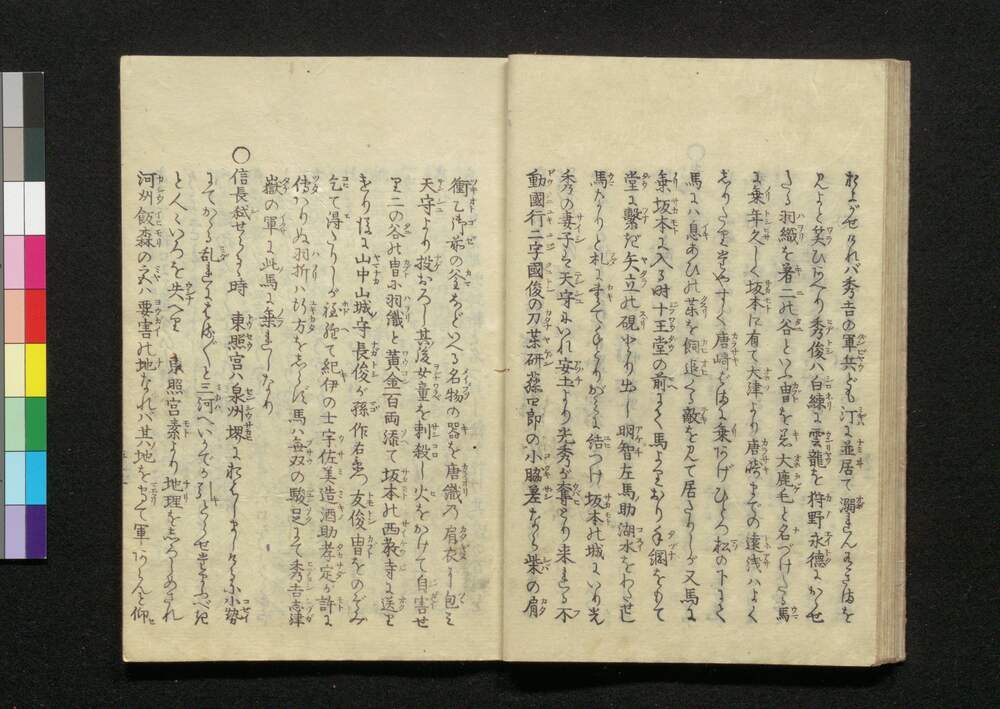 およがせけれバ秀吉の軍兵ども汀に並居て溺れんありさまを
見よと笑ひらへり秀俊ハ白練に雲龍を狩野永徳にかゝせ
たる羽織を着二の谷といふ冑を着大鹿毛と名づけたる馬
に乗年久しく坂本に有て大津より唐崎までの遠浅ハよく
しりたりやすやすと唐崎に乗りあげひとつ松の下にて
馬にハ息あひの薬を飼追くる敵を見て居たりしが又馬に
乗坂本に入る時十王堂の前にて馬よりおり手綱をもて
堂に繋ぎ矢立の硯とり出し明智左馬助湖水をわたせし
馬なりと札にかきてたてがミに結つけ坂本の城にいり光
秀の妻子を天守にいれ安土より光秀が奪とり来れる不
動國行二字國俊の刀茶研藤四郎の小脇差ならしバの肩
衝乙御前の釜などいへる名物の器を唐織の肩衣に包ミ
天守より投おろし其後女童を刺殺し火をかけて自害せ
り二の谷の冑羽織と黄金百両添て坂本の西教寺に送り
をり後に山中山城守長俊が孫作右衛門友俊冑をのぞミ
乞て得たりしが程経て紀伊の士宇佐美造酒助孝定が許に
傳ハりぬ羽折ハ行方をしらず馬ハ毎双の駿足にて秀吉志津
嶽の軍に此馬に乗れしなり
〇信長弑せらるゝ時　東照宮ハ泉州堺におハしましけるに小勢
にてかゝる乱れにはや〳〵と三河へいかでか引とらせ玉ふべき
と人〳〵いろを失へり　東照宮素より地理をしろしめされ
河州飯森の宮ハ要害の地なれバ其地をとりて軍あらんと仰